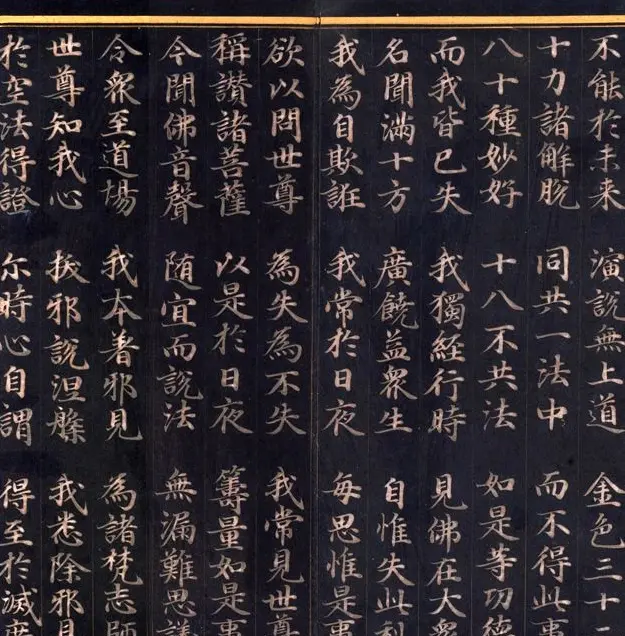 不能於未来 演說無上道 金色三十二
十力諸解脫 同共一法中 而不得此事
八十種妙好 十八不共法 如是等功德
而我皆已失 我獨經行時 見佛在大衆
名聞滿十方 廣饒益衆生 自惟失此利
我為自欺誑 我常於日夜 每思惟是事
欲以問世尊 為失為不失 我常見世尊
稱讃諸菩薩 以是於日夜 籌量如是事
今聞佛音聲 随宜而說法 無漏難思議
令衆至道場 我本着邪見 為諸梵志師
世尊知我心 拔邪說涅槃 我悉除邪見
於空法得證 尔時心自謂 得至於滅度